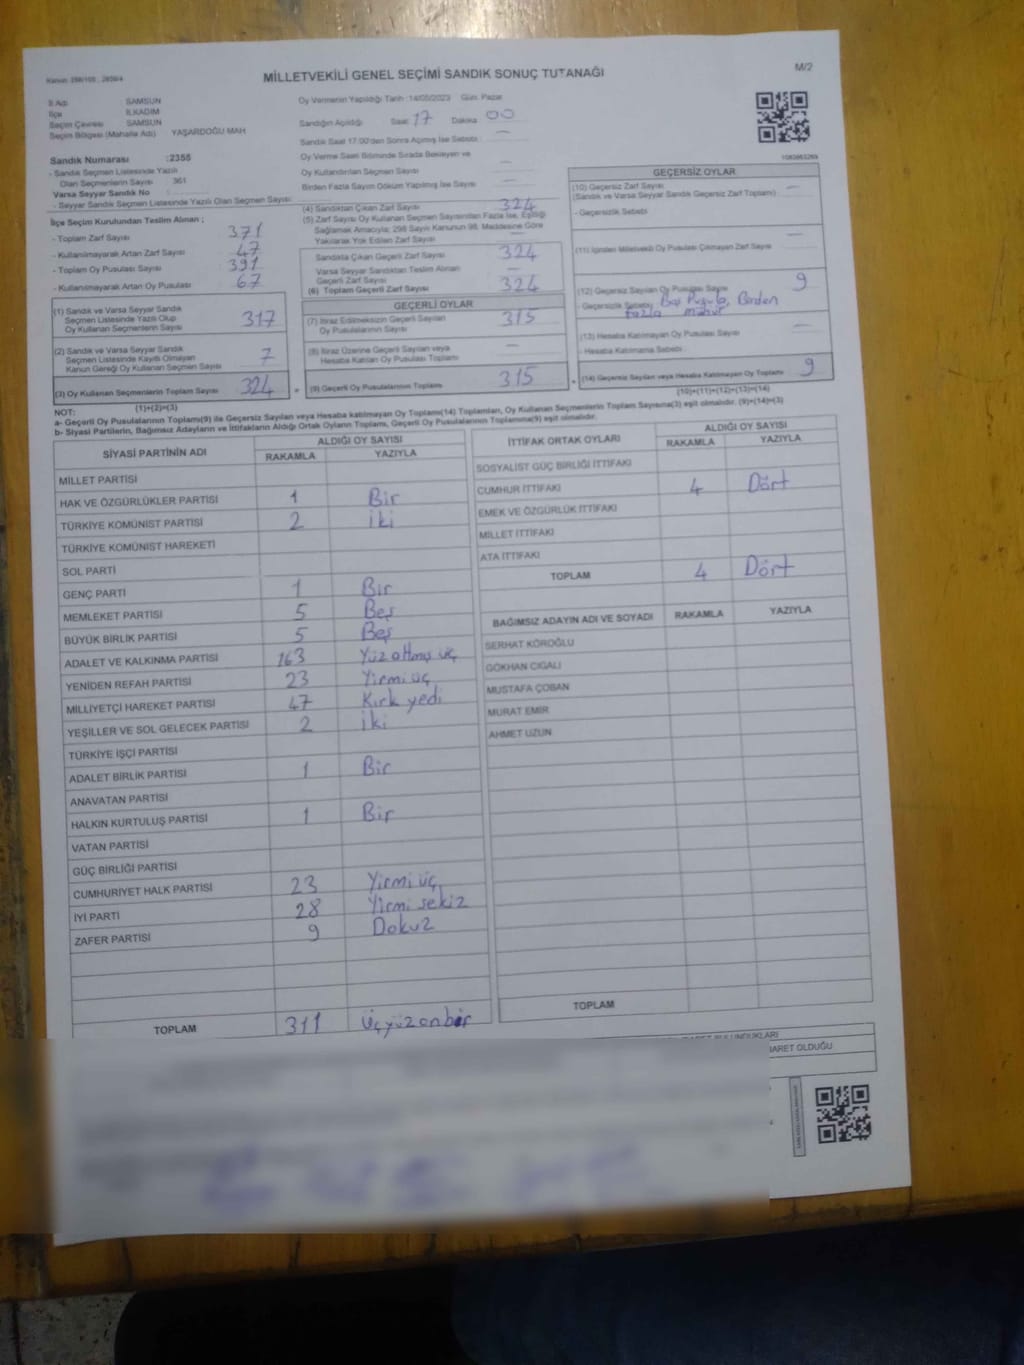 Kanun: 298/105 ; 2839/4
MİLLETVEKİLİ GENEL SEÇİMİ SANDIK SONUÇ TUTANAĞI
M/2
İl Adı SAMSUN
İlçe İLKADIM
Seçim Çevresi SAMSUN
Seçim Bölgesi (Mahalle Adı) YAŞARDOĞU MAH
Sandık Numarası :2358
- Sandık Seçmen Listesinde Yazılı
Olan Seçmenlerin Sayısı 361
Varsa Seyyar Sandık No
- Seyyar Sandık Seçmen Listesinde Yazılı Olan Seçmen Sayısı:
Oy Vermenin Yapıldığı Tarih :14/05/2023 Gün: Pazar
Sandığın Açıldığı Saat 17 Dakika 00
Sandık Saat 17:00'den Sonra Açılmış İse Sebebi : —
Oy Verme Saati Bitiminde Sırada Bekleyen ve
Oy Kullandırılan Seçmen Sayısı —
Birden Fazla Sayım Döküm Yapılmış İse Sayısı —
İlçe Seçim Kurulundan Teslim Alınan ;
- Toplam Zarf Sayısı 371
- Kullanılmayarak Artan Zarf Sayısı 47
- Toplam Oy Pusulası Sayısı 391
- Kullanılmayarak Artan Oy Pusulası Sayısı 67
(1) Sandık ve Varsa Seyyar Sandık
Seçmen Listesinde Yazılı Olup
Oy Kullanan Seçmenlerin Sayısı 317
(2) Sandık ve Varsa Seyyar Sandık
Seçmen Listesinde Kayıtlı Olmayan
Kanun Gereği Oy Kullanan Seçmen Sayısı 7
(3) Oy Kullanan Seçmenlerin Toplam Sayısı 324
(1)+(2)=(3)
(4) Sandıktan Çıkan Zarf Sayısı 324
(5) Zarf Sayısı Oy Kullanan Seçmen Sayısından Fazla İse, Eşitliği
Sağlamak Amacıyla; 298 Sayılı Kanunun 98. Maddesine Göre
Yakılarak Yok Edilen Zarf Sayısı —
Sandıkta Çıkan Geçerli Zarf Sayısı 324
Varsa Seyyar Sandıktan Teslim Alınan
Geçerli Zarf Sayısı —
(6) Toplam Geçerli Zarf Sayısı 324
GEÇERLİ OYLAR
(7) İtiraz Edilmeksizin Geçerli Sayılan
Oy Pusulalarının Sayısı 315
(8) İtiraz Üzerine Geçerli Sayılan veya
Hesaba Katılan Oy Pusulası Toplamı —
= (9) Geçerli Oy Pusulalarının Toplamı 315
1083663269
GEÇERSİZ OYLAR
(10) Geçersiz Zarf Sayısı
(Sandık ve Varsa Seyyar Sandık Geçersiz Zarf Toplamı) —
- Geçersizlik Sebebi
(11) İçinden Milletvekili Oy Pusulası Çıkmayan Zarf Sayısı —
(12) Geçersiz Sayılan Oy Pusulası Sayısı 9
- Geçersizlik Sebebi Boş Pusula, Birden
fazla mühür
(13) Hesaba Katılmayan Oy Pusulası Sayısı —
- Hesaba Katılmama Sebebi
+ (14) Geçersiz Sayılan veya Hesaba Katılmayan Oy Toplamı 9
(10)+(11)+(12)+(13)=(14)
NOT:
a- Geçerli Oy Pusulalarının Toplamı(9) ile Geçersiz Sayılan veya Hesaba katılmayan Oy Toplamı(14) Toplamları, Oy Kullanan Seçmenlerin Toplam Sayısına(3) eşit olmalıdır. (9)+(14)=(3)
b- Siyasi Partilerin, Bağımsız Adayların ve İttifakların Aldığı Ortak Oyların Toplamı, Geçerli Oy Pusulalarının Toplamına(9) eşit olmalıdır.
SİYASİ PARTİNİN ADI ALDIĞI OY SAYISI
RAKAMLA YAZIYLA
MİLLET PARTİSİ
HAK VE ÖZGÜRLÜKLER PARTİSİ 1 Bir
TÜRKİYE KOMÜNİST PARTİSİ 2 iki
TÜRKİYE KOMÜNİST HAREKETİ
SOL PARTİ
GENÇ PARTİ 1 Bir
MEMLEKET PARTİSİ 5 Beş
BÜYÜK BİRLİK PARTİSİ 5 Beş
ADALET VE KALKINMA PARTİSİ 163 Yüz altmış üç
YENİDEN REFAH PARTİSİ 23 Yirmi üç
MİLLİYETÇİ HAREKET PARTİSİ 47 Kırk yedi
YEŞİLLER VE SOL GELECEK PARTİSİ 2 iki
TÜRKİYE İŞÇİ PARTİSİ
ADALET BİRLİK PARTİSİ 1 Bir
ANAVATAN PARTİSİ
HALKIN KURTULUŞ PARTİSİ 1 Bir
VATAN PARTİSİ
GÜÇ BİRLİĞİ PARTİSİ
CUMHURİYET HALK PARTİSİ 23 Yirmi üç
İYİ PARTİ 28 Yirmi sekiz
ZAFER PARTİSİ 9 Dokuz
TOPLAM 311 Üçyüz onbir
İTTİFAK ORTAK OYLARI ALDIĞI OY SAYISI
RAKAMLA YAZIYLA
SOSYALİST GÜÇ BİRLİĞİ İTTİFAKI
CUMHUR İTTİFAKI 4 Dört
EMEK VE ÖZGÜRLÜK İTTİFAKI
MİLLET İTTİFAKI
ATA İTTİFAKI
TOPLAM 4 Dört
BAĞIMSIZ ADAYIN ADI VE SOYADI RAKAMLA YAZIYLA
SERHAT KÖROĞLU
GÖKHAN CIGALI
MUSTAFA ÇOBAN
MURAT EMİR
AHMET UZUN
TOPLAM
BULUNDUKLARI
İBARET OLDUĞU